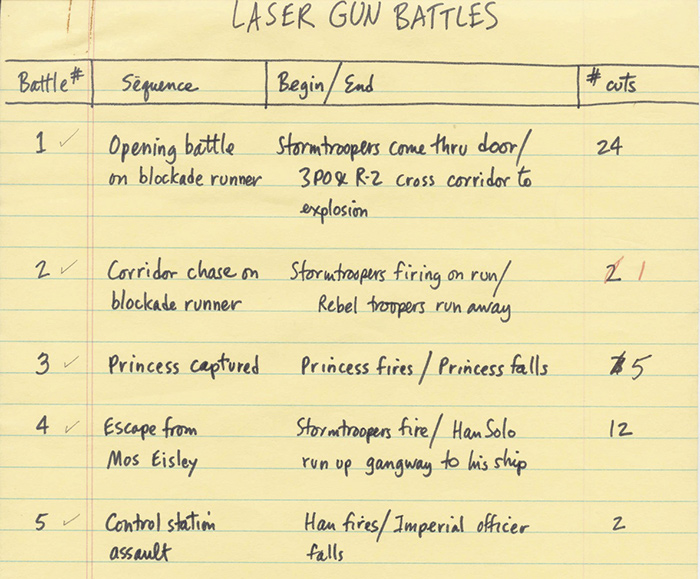 LASER GUN BATTLES
Battle # Sequence Begin/End # cuts
1 ✓ Opening battle Stormtroopers come thru door/ 24
on blockade runner 3PO & R-2 cross corridor to
explosion
2 ✓ Corridor chase on Stormtroopers firing on run/ 2 1
blockade runner Rebel troopers run away
3 ✓ Princess captured Princess fires / Princess falls 5
4 ✓ Escape from Stormtroopers fire/ Han Solo 12
Mos Eisley run up gangway to his ship
5 ✓ Control station Han fires/Imperial officer 2
assault falls